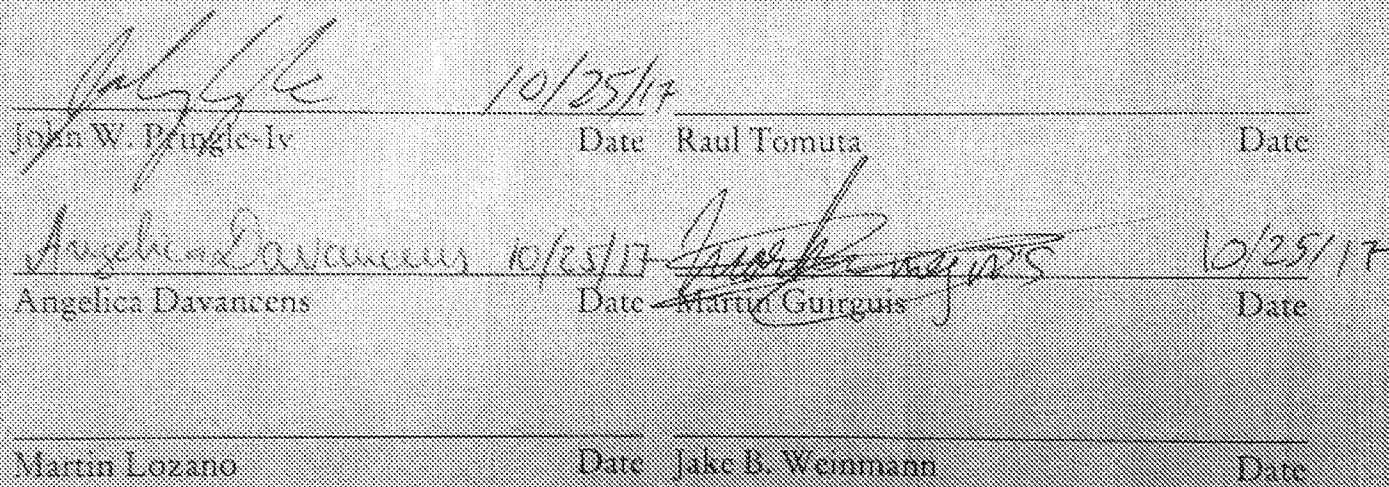 10/25/17
John W. Pringle-Iv Date Raul Tomuta Date
Angelica Davancens 10/25/17 10/25/17
Angelica Davancens Date Martin Guirguis Date
Martin Lozano Date Jake B. Weinmann Date